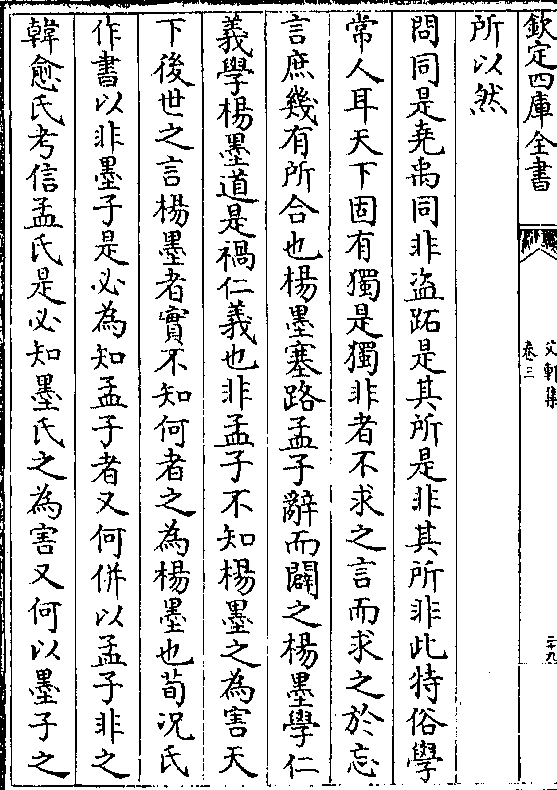 欽定四庫全書
艾軒集
卷三
二十九
所以然
問同是堯禹同非盜跖是其所是非其所非此特俗學
常人耳天下固有獨是獨非者不求之言而求之於忘
言庶幾有所合也楊墨塞路孟子辭而闢之楊墨學仁
義學楊墨道是禍仁義也非孟子不知楊墨之為害天
下後世之言楊墨者實不知何者之為楊墨也荀況氏
作書以非墨子是必為知孟子者又何併以孟子非之
韓愈氏考信孟氏是必知墨氏之為害又何以墨子之